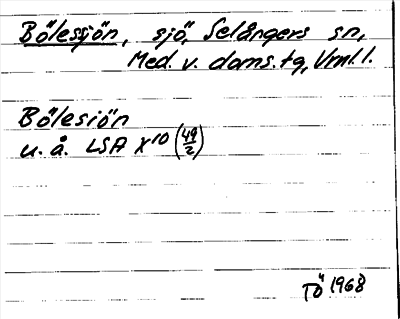 Bölessjön, sjö, Selångers sn,
Med. v. doms.tg, Vml.l.
Bölesiön
u. å. LSA X10 (49/2)
TÖ 1968